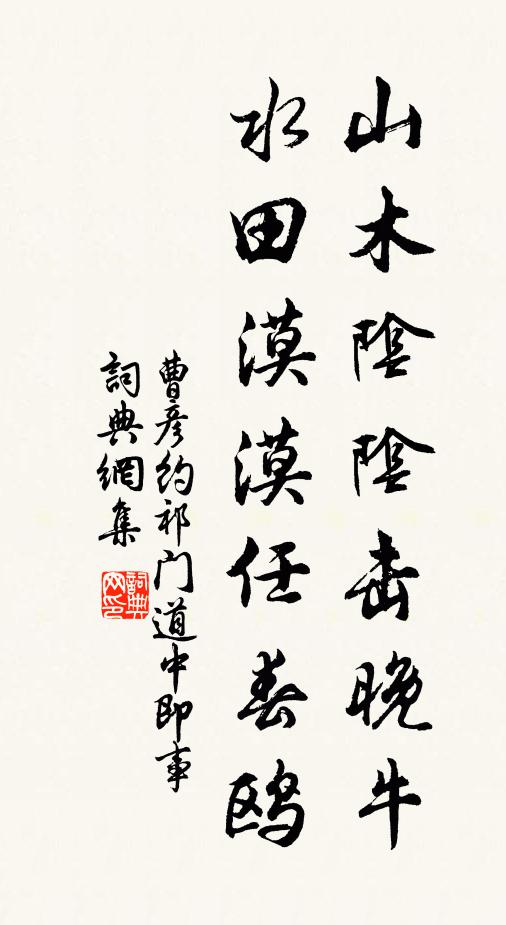 山木陰陰击晚牛
水田漠漠任春鸥
曹彦約祁門道中即事
詞典網集
詞典网印